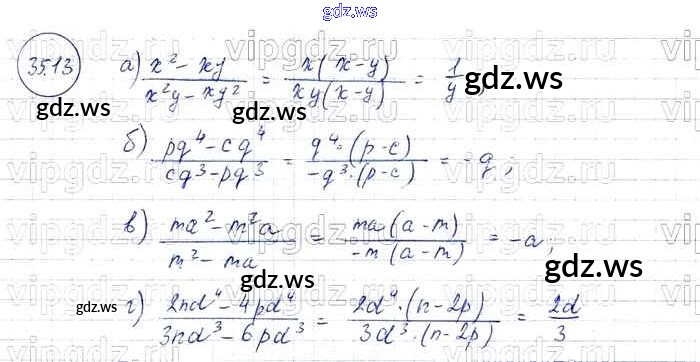 gdz.ws
35.13 а) (x² - xy)/(x²y - xy²) = x(x-y)/(xy(x-y)) = 1/y;
gdz.ws gdz.ws gdz.ws
б) (pq⁴ - cq⁴)/(cq³ - pq³) = q⁴·(p-c)/(-q³·(p-c)) = -q;
в) (ma² - m²a)/(m² - ma) = ma(a-m)/(-m(a-m)) = -a;
gdz.ws gdz.ws
г) (2nd⁴ - 4pd⁴)/(3nd³ - 6pd³) = 2d⁴·(n-2p)/(3d³·(n-2p)) = 2d/3
gdz.ws
gdz.ws
vipgdz.ws